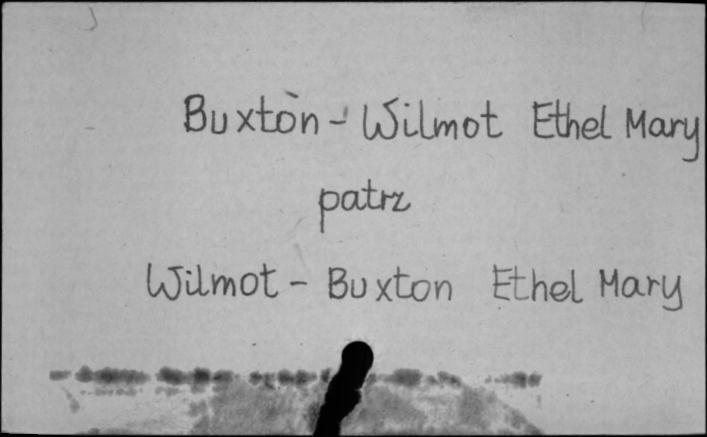 Buxton - Wilmot Ethel Mary
patrz
Wilmot - Buxton Ethel Mary